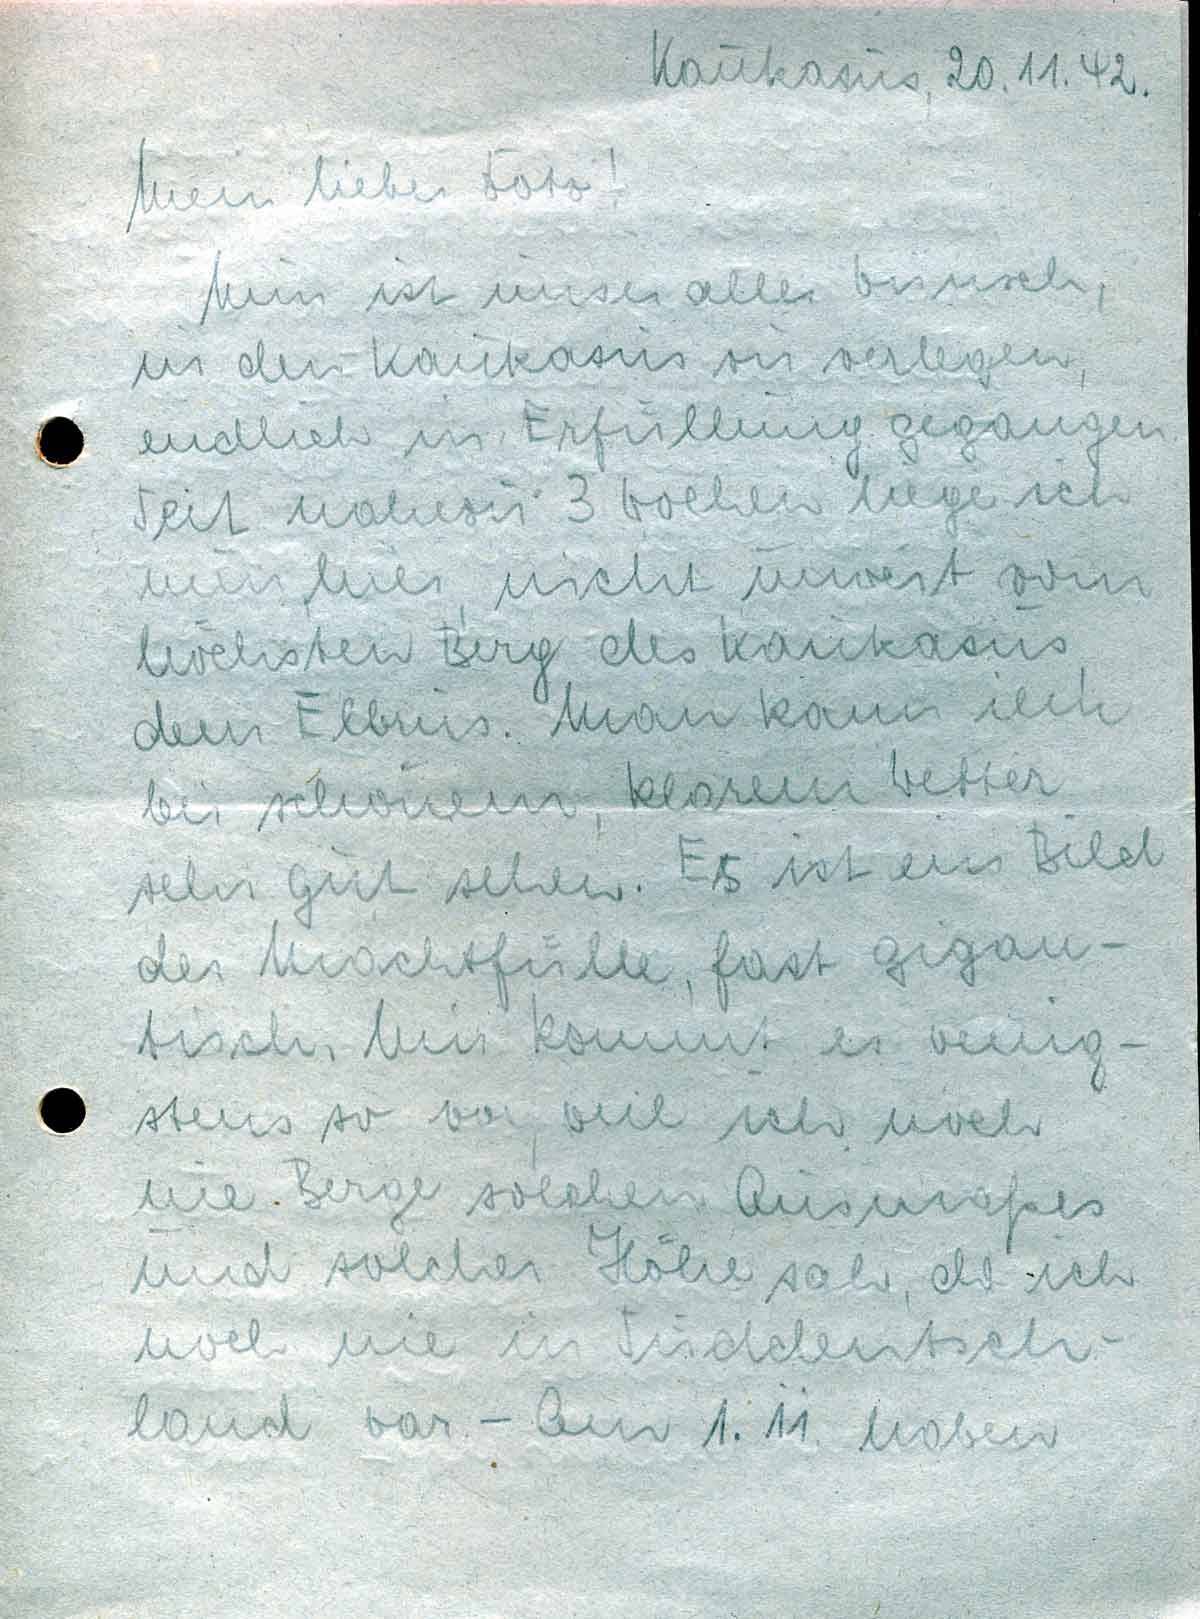 Kaukasus, 20.11.42.
Mein lieber
Nun ist unser aller Wunsch,
in den Kaukasus zu verlegen,
endlich in Erfüllung gegangen.
Seit nahezu 3 Wochen liege ich
nun hier, nicht unweit vom
höchsten Berg des Kaukasus,
dem Elbrus. Man kann ihn
bei schönem, klarem Wetter
sehr gut sehen. Es ist ein Bild
der Machtfülle, fast gigan-
tisch. Mir kommt es wenig-
stens so vor, weil ich noch
nie Berge solchen Ausmaßes
und solcher Höhe sah, da ich
noch nie in Süddeutsch-
land war. - Am 1.11. haben